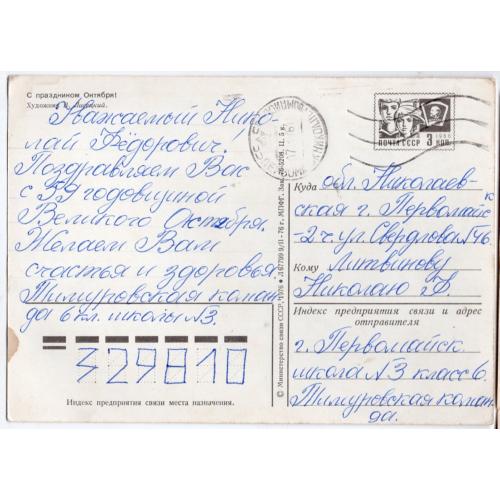 С праздником Октября!
Уважаемый Нико-
лай Фёдорович.
Поздравляем Вас
с 59 годовщиной
Великого Октября.
Желаем Вам
счастья и здоровья
Тимуровская коман-
да 6 кл. школы №3.
329810
Индекс предприятия связи места назначения.
© Министерство связи СССР, 1976
ПОЧТА СССР 3 КОП.
1966
Куда обл. Николаев-
ская г. Первомайск
-2 ч. ул. Свердлова №46
Кому Литвинову
Николаю Ф
Индекс предприятия связи и адрес
отправителя
г. Первомайск
школа №3 класс 6.
Тимуровская коман-
да.